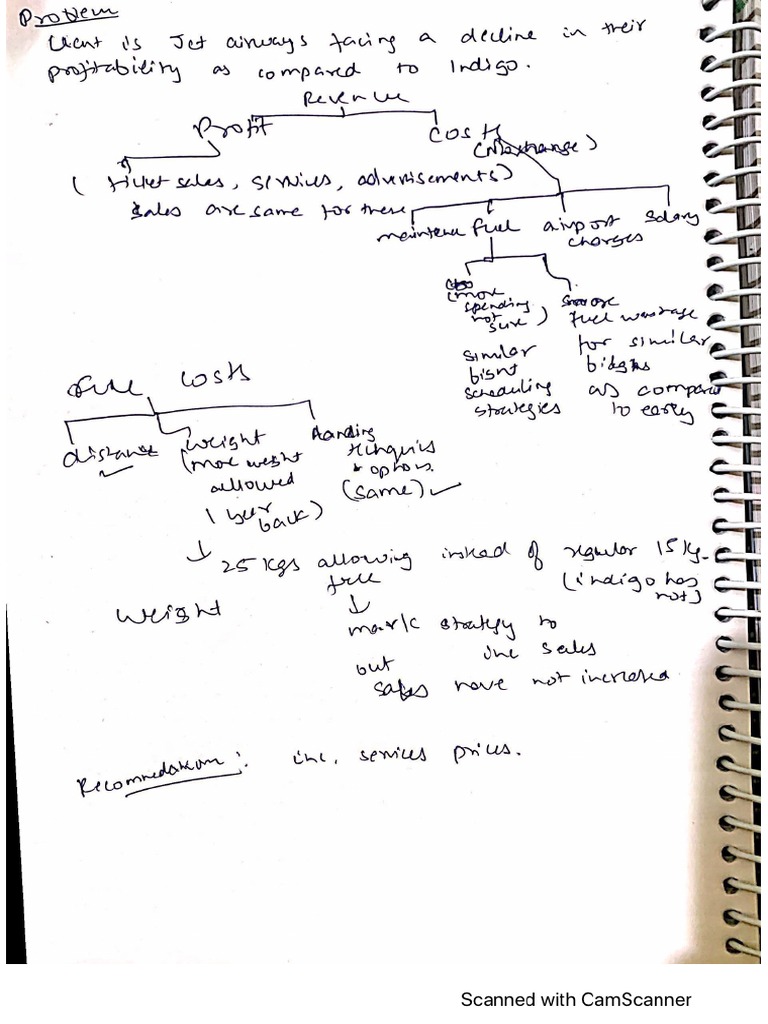 Problem
Client is Jet airways facing a decline in their
profitability as compared to Indigo.
Revenue
Profit
Cost
(ticket sales, services, advertisements)
Sales are same for these
fuel airport charges
salary
(more spending not sure)
fuel wastage
for similar
as compare
to early
similar
scheduling
strategies
costs
distance ✓
weight
(more weight
allowed
back)
Landing
(same) ✓
↓ 25 kgs allowing instead of regular 15 kg
free
(indigo has
not)
weight
↓
strategy to
inc sales
but
sales have not increased
Recommedation: inc. services prices.
Scanned with CamScanner